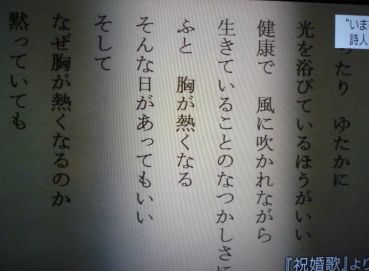 ったり ゆたかに
光を浴びているほうがいい
健康で 風に吹かれながら
生きていることのなつかしさに
ふと 胸が熱くなる
そんな日があってもいい
そして
なぜ胸が熱くなるのか
黙っていても
“いま
詩人
『祝婚歌』より